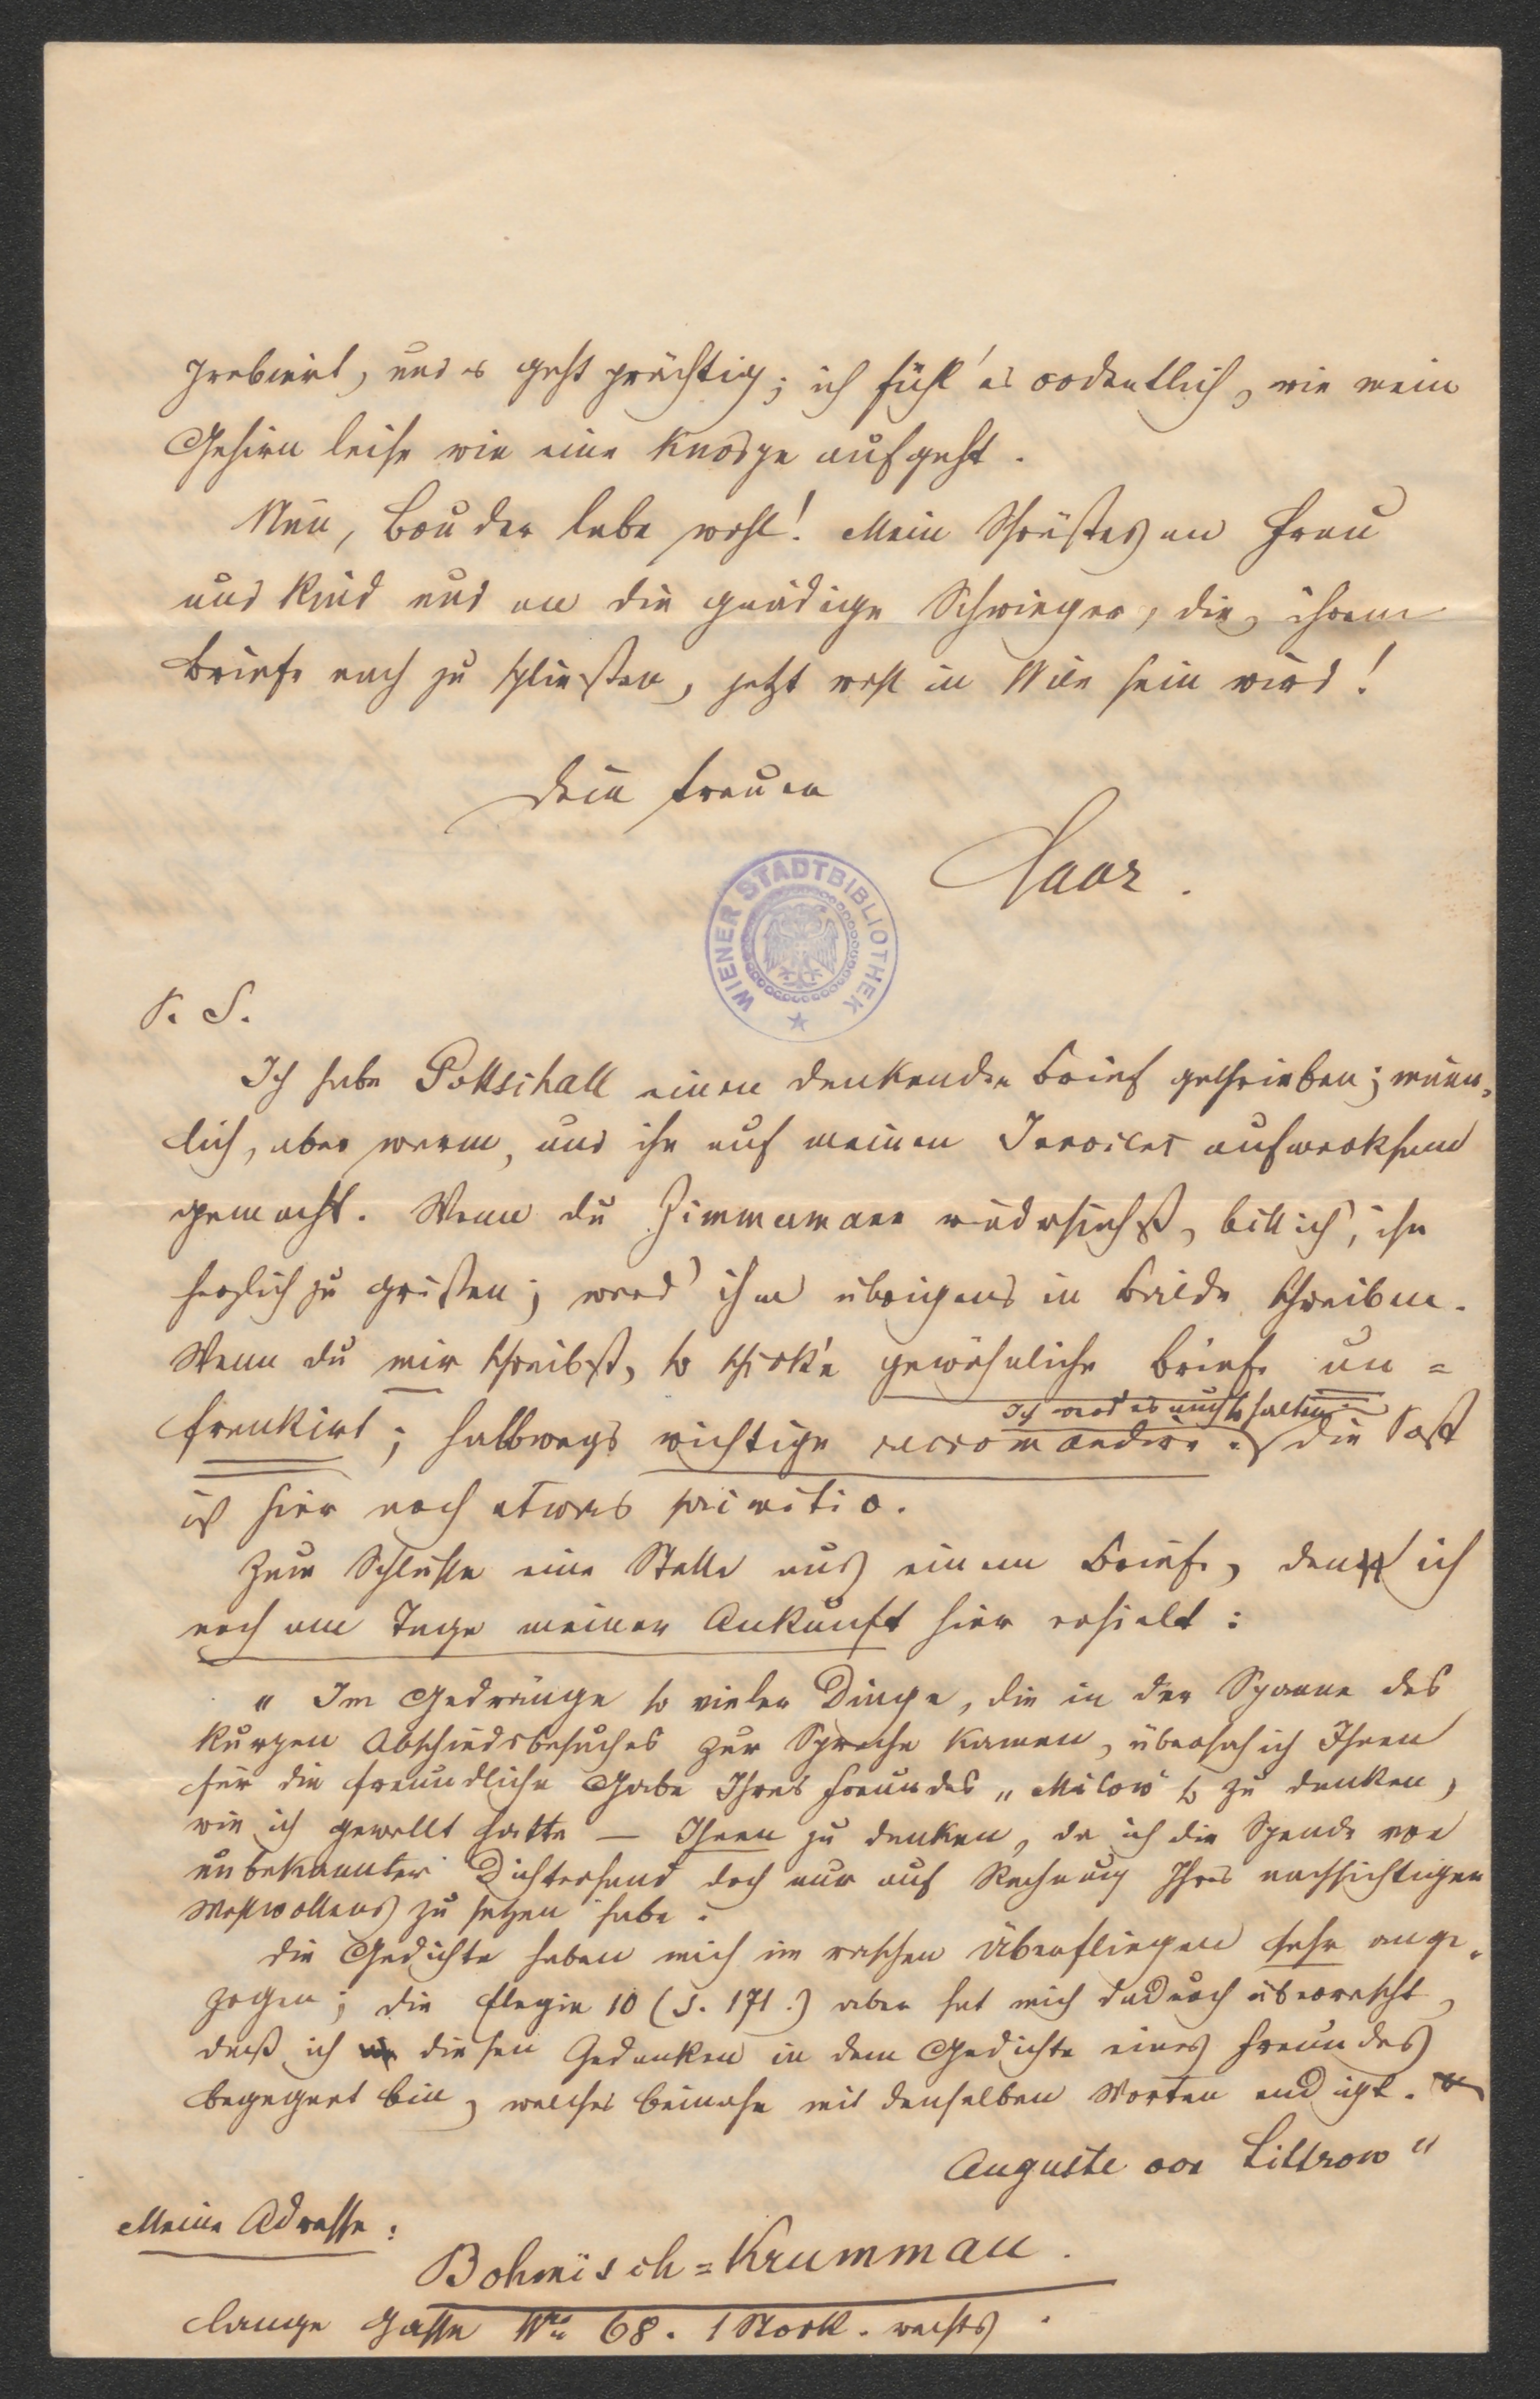 probiert, und es geht prächtig; ich fühl' es ordentlich, wie mein
Gehirn leise wie eine Knospe aufgeht.
Nun, Bruder lebe wohl! Mein Schönstes an Frau
und Kind und an die gnädige Schwieger, die, ihrem
Briefe nach zu schließen, jetzt wohl in Wien sein wird!
Dein treuer
Saar.
WIENER STADTBIBLIOTHEK
P. S.
Ich habe Gottschall einen dankenden Brief geschrieben; männ-
lich, aber warm, und ihn auf meinen Innocens aufmerksam
gemacht. Wenn du Zimmermann wiedersiehst, bitt ich, ihn
herzlich zu grüßen; werd' ihm übrigens in Bälde schreiben.
Wenn du mir schreibst, so schick'e gewöhnliche Briefe un=
Ich werd es auch so halten
frankirt; halbwegs wichtige recommandire. Die Post
ist hier noch etwas primitiv.
Zum Schlusse eine Stelle aus einem Briefe, den ich
noch am Tage meiner Ankunft hier erhielt:
„Im Gedränge so vieler Dinge, die in der Spanne des
kurzen Abschiedsbesuches zur Sprache kamen, übersah ich Ihnen
für die freundliche Gabe Ihres Freundes „Milow" so zu danken,
wie ich gewollt hatte — Ihnen zu danken, da ich die Spende von
unbekannter Dichterhand doch nur auf Rechnung Ihres nachsichtigen
Wohlwollens zu setzen habe.
Die Gedichte haben mich im raschen Überfliegen sehr ange-
zogen; die Elegie 10 (S. 171.) aber hat mich dadurch überrascht,
daß ich diesen Gedanken in dem Gedichte eines Freundes
begegnet bin, welches beinahe mit denselben Worten endigt.
Auguste von Littrow"
Meine Adresse:
Böhmisch=Krummau.
lange Gasse Nro 68. 1 Stock. rechts.